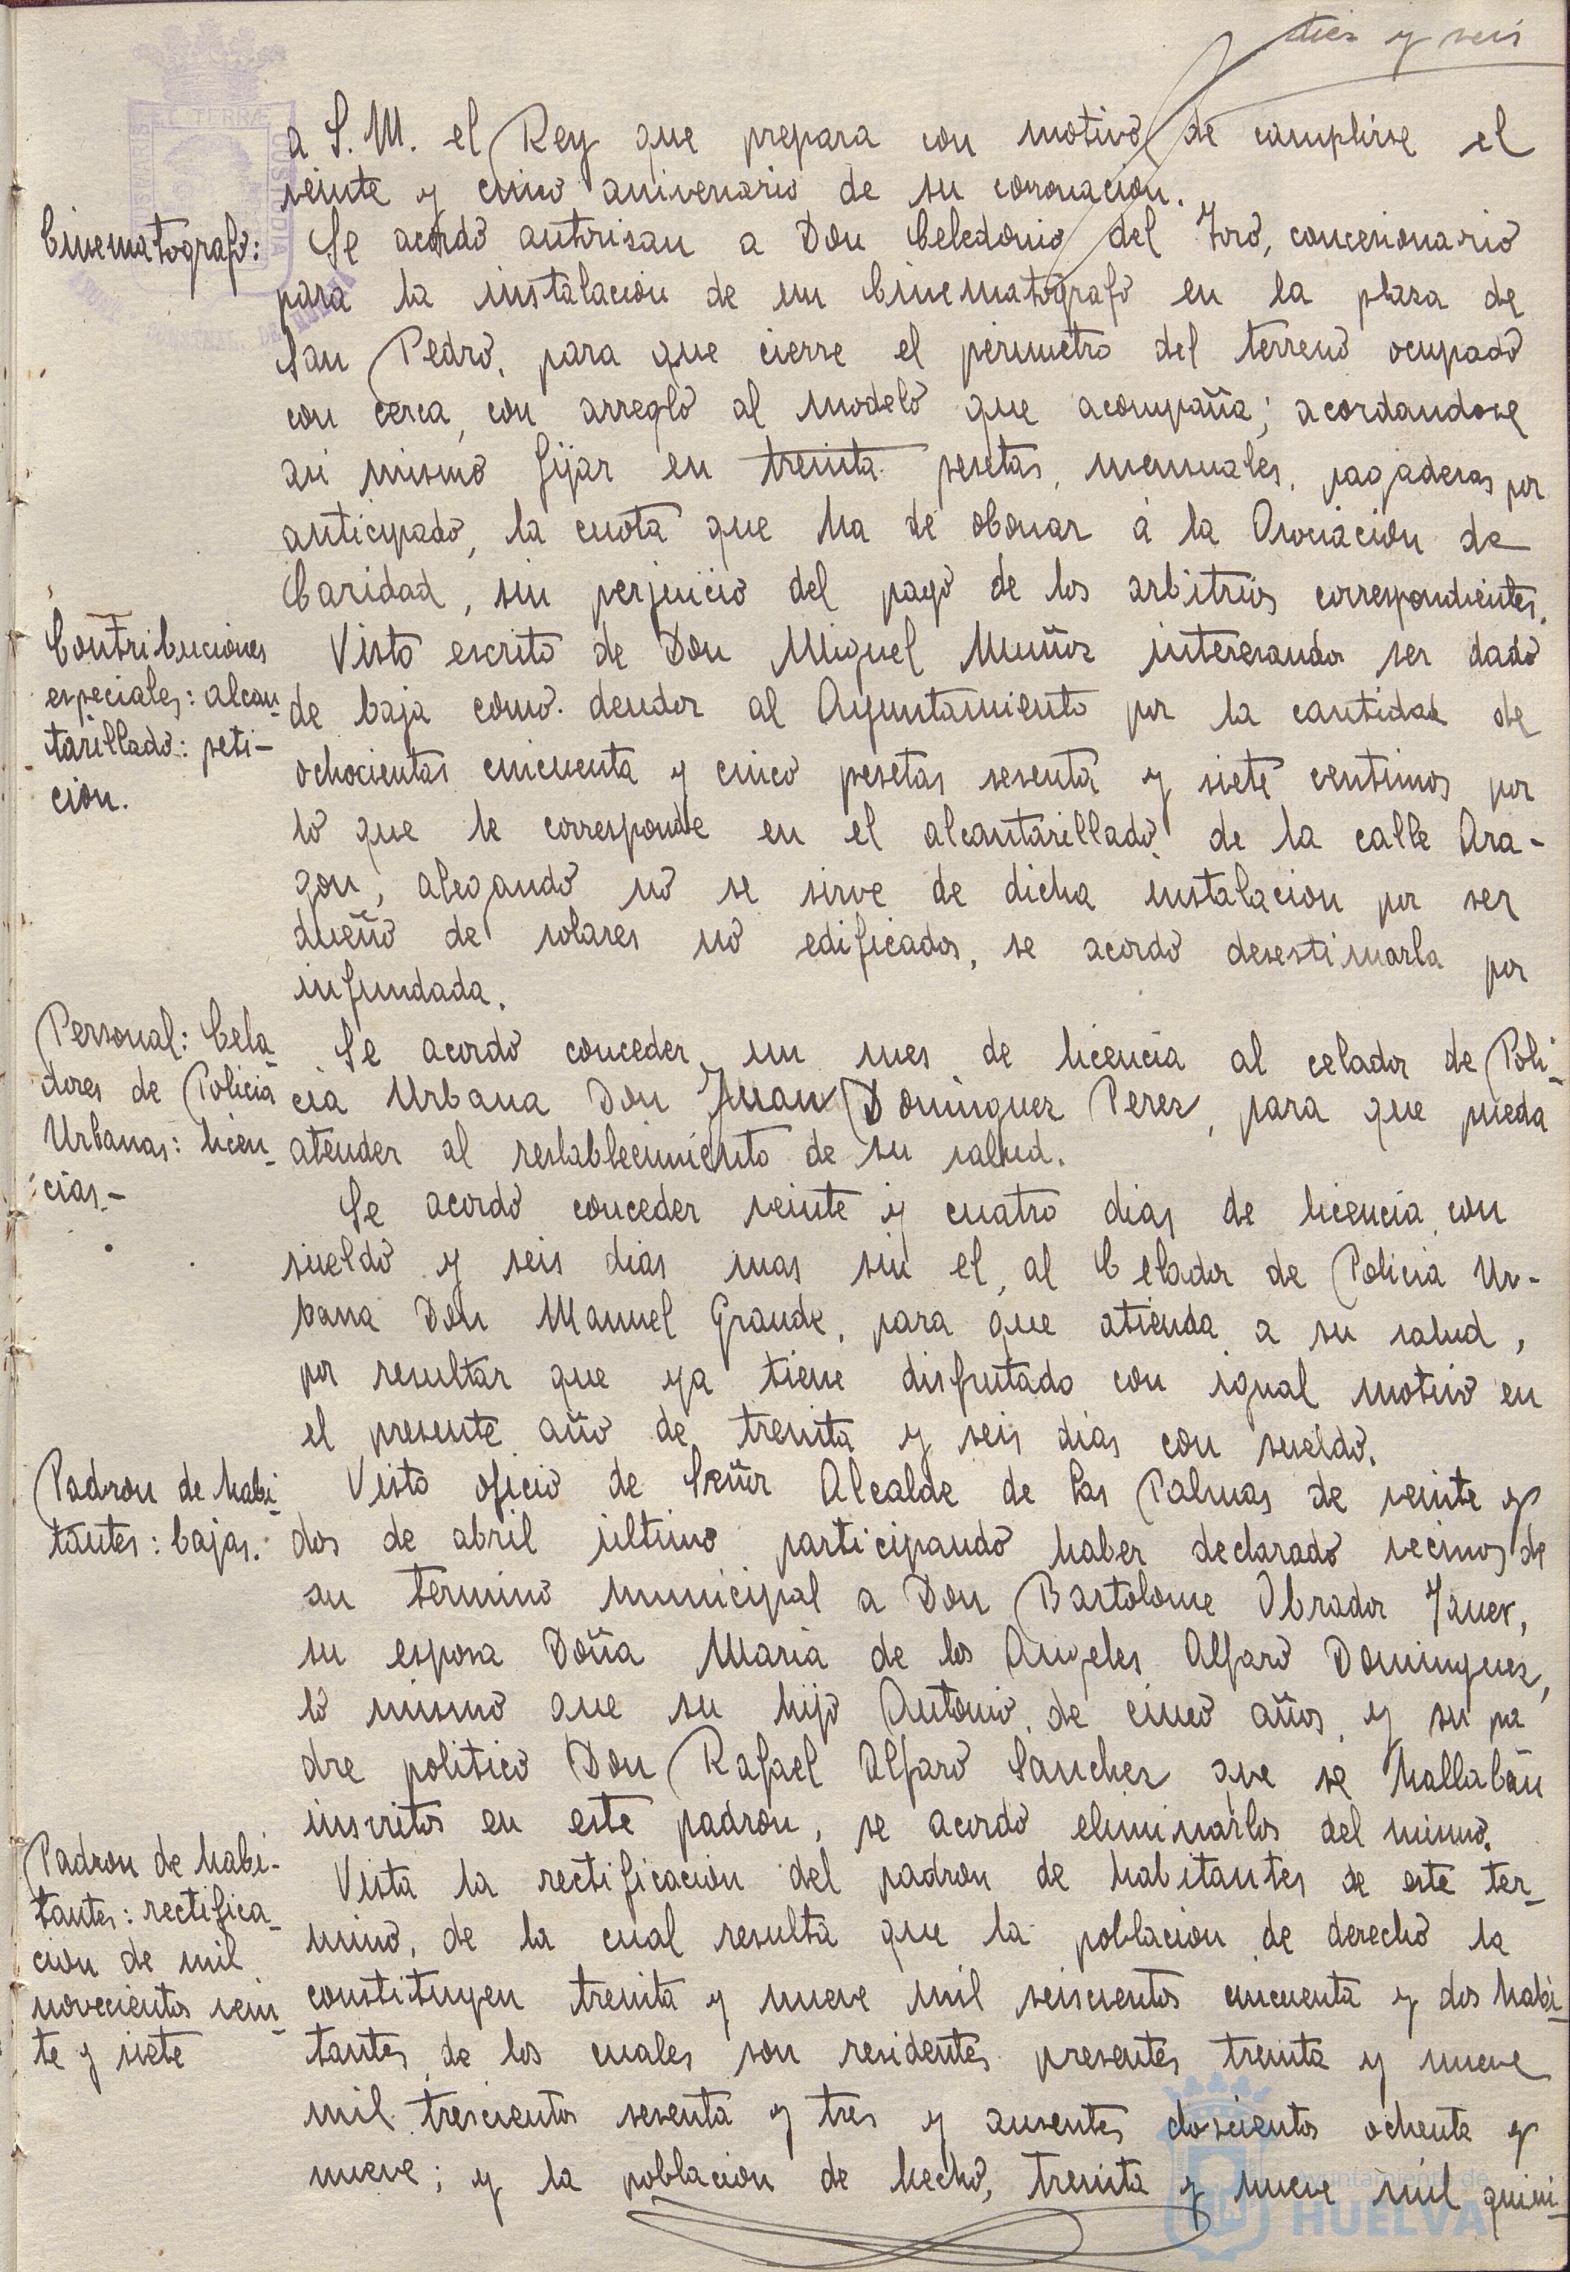 diez y seis
a S. M. el Rey que prepara con motivo de cumplirse el
veinte y cinco aniversario de su coronacion.
Cinematografo:
Se acordó autorisan a Don Celedonio del Toro, concesionario
para la instalacion de un Cinematografo en la plaza de
San Pedro, para que cierre el perimetro del terreno ocupado
con cerca, con arreglo al modelo que acompaña; acordandose
asi mismo fijar en treinta pesetas, mensuales, pagaderas por
anticipado, la cuota que ha de obonar á la Asociacion de
Caridad, sin perjuicio del pago de los arbitrios correspondientes.
Contribuciones
especiales: alcan-
tarillado: peti-
cion.
Visto escrito de Don Miguel Muñoz interesando ser dado
de baja como deudor al Ayuntamiento por la cantidad de
ochocientas cincuenta y cinco pesetas sesenta y siete centimos por
lo que le corresponde en el alcantarillado de la calle Ara-
gon, alegando no se sirve de dicha instalacion por ser
dueño de solares no edificados, se acordó desestimarla por
infundada.
Personal: Cela-
dores de Policia
Urbanas: licen-
cias.-
Se acordó conceder un mes de licencia al celador de Poli-
cia Urbana Don Juan Dominguez Perez, para que pueda
atender al restablecimiento de su salud.
Se acordó conceder veinte y cuatro dias de licencia con
sueldo y seis dias mas sin el, al Celador de Policia Ur-
bana Don Manuel Grande, para que atienda a su salud,
por resultar que ya tiene disfrutado con igual motivo en
el presente año de treinta y seis dias con sueldo.
Padron de habi-
tantes: bajas.
Visto oficio de Señor Alcalde de Las Palmas de veinte y
dos de abril último participando haber declarado vecinos de
su termino municipal a Don Bartolome Obrador Janer,
su esposa Doña Maria de los Angeles Alfaro Dominguez,
lo mismo que su hijo Antonio, de cinco años, y su pa
dre politico Don Rafael Alfaro Sanchez que se hallaban
inscritos en este padron, se acordó eliminarlos del mismo.
Padron de habi-
tantes: rectifica-
cion de mil
novecientos vein-
te y siete
Vista la rectificacion del padron de habitantes de este ter-
mino, de la cual resulta que la poblacion de derecho la
constituyen treinta y nueve mil seiscientos cincuenta y dos habi-
tantes, de los cuales son residentes presentes treinta y nueve
mil trescientos sesenta y tres y ausentes doscientos ochenta y
nueve; y la poblacion de hecho, treinta y nueve mil quini-
Ayuntamiento de
HUELVA